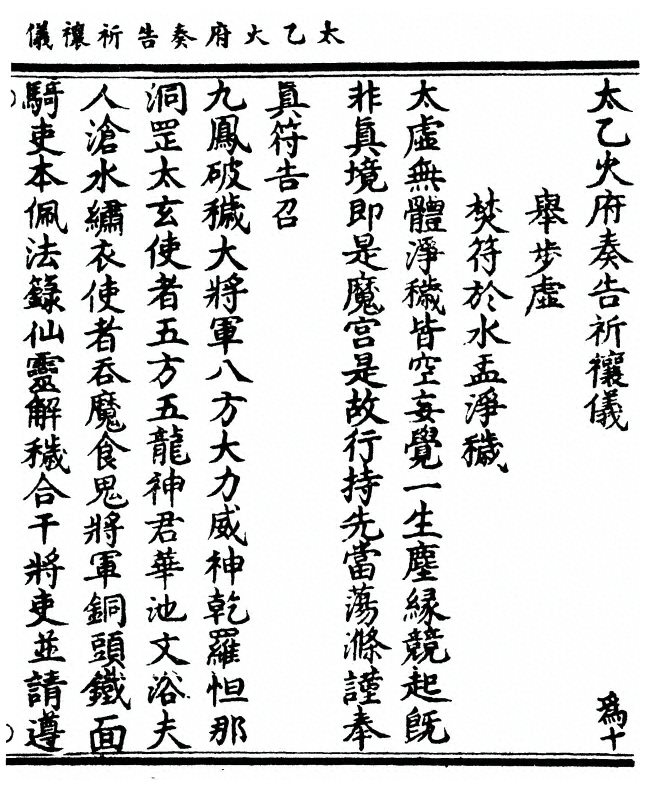 太乙火府奏告祈禳儀
太乙火府奏告祈禳儀 爲十
舉步虛
焚符於水盂淨穢
太虛無體淨穢皆空妄覺一生塵緣競起既
非眞境即是魔宫是故行持先當蕩滌謹奉
眞符告召
九鳳破穢大將軍八方大力威神乾羅怛那
洞罡太玄使者五方五龍神君華池文浴夫
人滄水繡衣使者吞魔食鬼將軍銅頭鐵面
騎吏本佩法籙仙靈解穢合干將吏並請遵